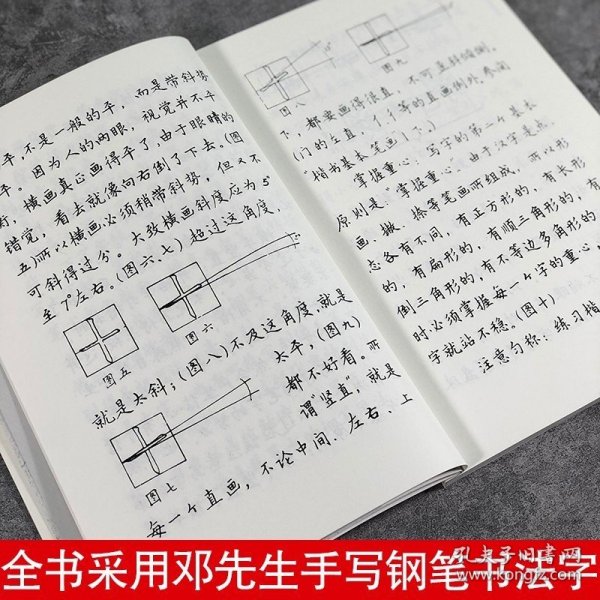 平,不是一般的平,而是带斜势
平。因为人的两眼,视觉并不平
好,横画真正画得平了,由于眼睛的
错觉,看去就像向右倒了下去。(图
五)所以横画必须稍带斜势,但又不
可斜得过分。大致横画斜度应为5°
至7°左右。(图六、七)超过这角度,
图五
图六
就是太斜;(图八)不及这角度,就是
太平,(图九)
都不好看。所
谓"竖直",就是
图七
每一个直画,不论中间、左右、上
图八
图九
下,都要画得很直,不可歪斜
(门的左直、亻彳等的直画例外,参阅
"楷书基本笔画")下。)
掌握重心:写字的第二个基本
原则是:"掌握重心"。由于汉字是点、
画、撇、捺等笔画所组成,所以形
态各有不同,有正方形的,有长形
的,有扁形的,有顺三角形的,有
倒三角形的,有不等边多角形的
时必须掌握每一个字的重心,
字就站不稳。(图十)
注意匀称:练习楷
全书采用邓先生手写钢笔书法字
孔夫子旧书网
www.kongfz.com